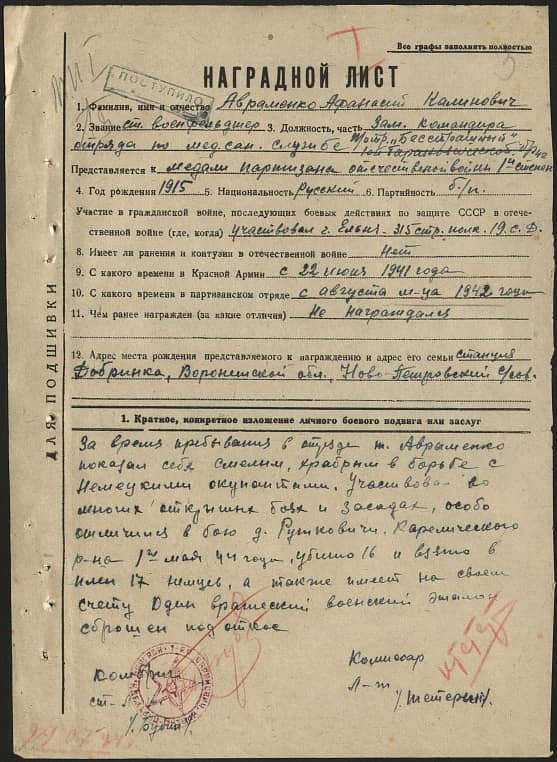 Все графы заполнять полностью
5
ПОСТУПИЛО
НАГРАДНОЙ ЛИСТ
1. Фамилия, имя и отчество Авраменко Афанасий Калинович
2. Звание ст военфельдшер 3. Должность, часть Зам. командира
отряда по мед. сан. службе "Бесстрашный"
Представляется к медали партизана отечественной войны 1ой степени
4. Год рождения 1915 5. Национальность Русский 6. Партийность б/п.
Участие в гражданской войне, последующих боевых действиях по защите СССР в отече-
ственной войне (где, когда) участвовал г. Ельня - 315 стр. полк. 19 с. д.
8. Имеет ли ранения и контузии в отечественной войне Нет
9. С какого времени в Красной Армии с 22 июня 1941 года
10. С какого времени в партизанском отряде с августа м-ца 1942 года
11. Чем ранее награжден (за какие отличия) Не награждался
12. Адрес места рождения представляемого к награждению и адрес его семьи станция
Добринка, Воронежской обл., Ново-Петровский с/сов.
ДЛЯ ПОДШИВКИ
1. Краткое, конкретное изложение личного боевого подвига или заслуг
За время пребывания в отряде т. Авраменко
показал себя смелым, храбрым в борьбе с
Немецкими окупантами. Участвовал во
многих открытых боях и засадах, особо
отличился в бою д. Рутковичи. Кареличского
р-на 1го мая 44 года, убито 16 и взято в
плен 17 немцев, а также имеет на своем
счету Один вражеский военский эшалон
сброшен под откос
Комбриг
Комиссар
ст. Л-
Л-т
/Тетерин/